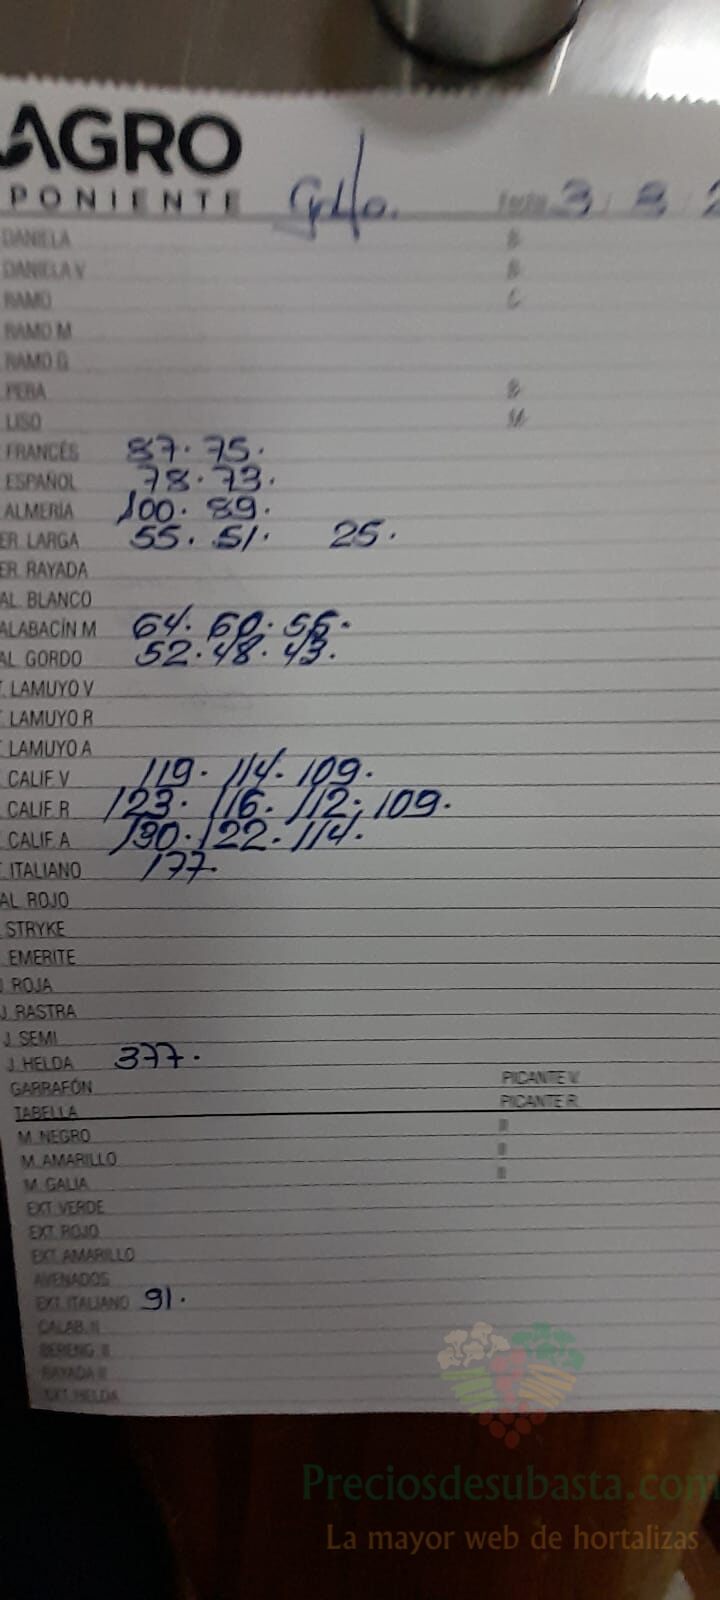 AGRO
PONIENTE
Fecha 3 8 2
DANIELA
DANIELA V
RAMO
RAMO M
RAMO G
PERA
LISO
FRANCÉS 87. 75.
ESPAÑOL 78. 73.
ALMERÍA 100. 89.
ER. LARGA 55. 51. 25.
ER. RAYADA
AL. BLANCO
ALABACÍN M 64. 60. 56.
AL. GORDO 52. 48. 43.
. LAMUYO V
. LAMUYO R
. LAMUYO A
. CALIF. V 119. 114. 109.
. CALIF. R 123. 116. 112. 109.
. CALIF. A 130. 122. 114.
. ITALIANO 177.
AL. ROJO
STRYKE
EMERITE
J. ROJA
J. RASTRA
J. SEMI
J. HELDA 377.
GARRAFÓN PICANTE V.
TABELLA PICANTE R.
M. NEGRO
M. AMARILLO
M. GALIA
EXT. VERDE
EXT. ROJO
EXT. AMARILLO
AVENADOS
EXT. ITALIANO 91.
CALAB. II
BERENG. II
RAYADA II
EXT. HELDA
Preciosdesubasta.com
La mayor web de hortalizas